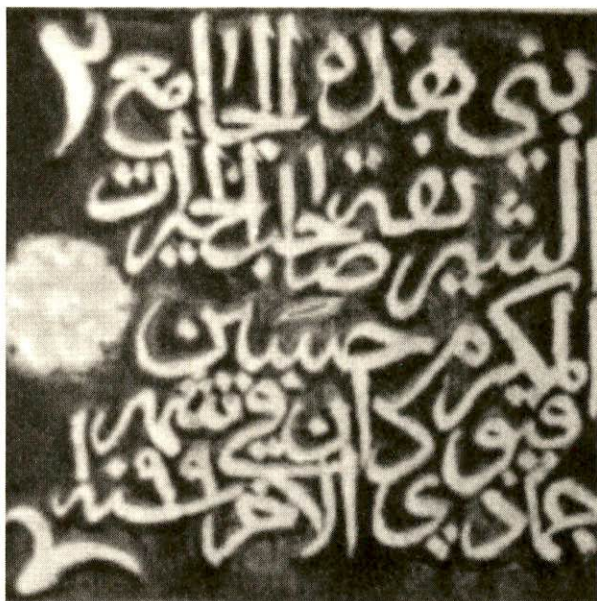 بني هذه الجامع
الشريفة صاحب الخيرات
المكرم حسين
قيودان في شهر
جمادي الاخر